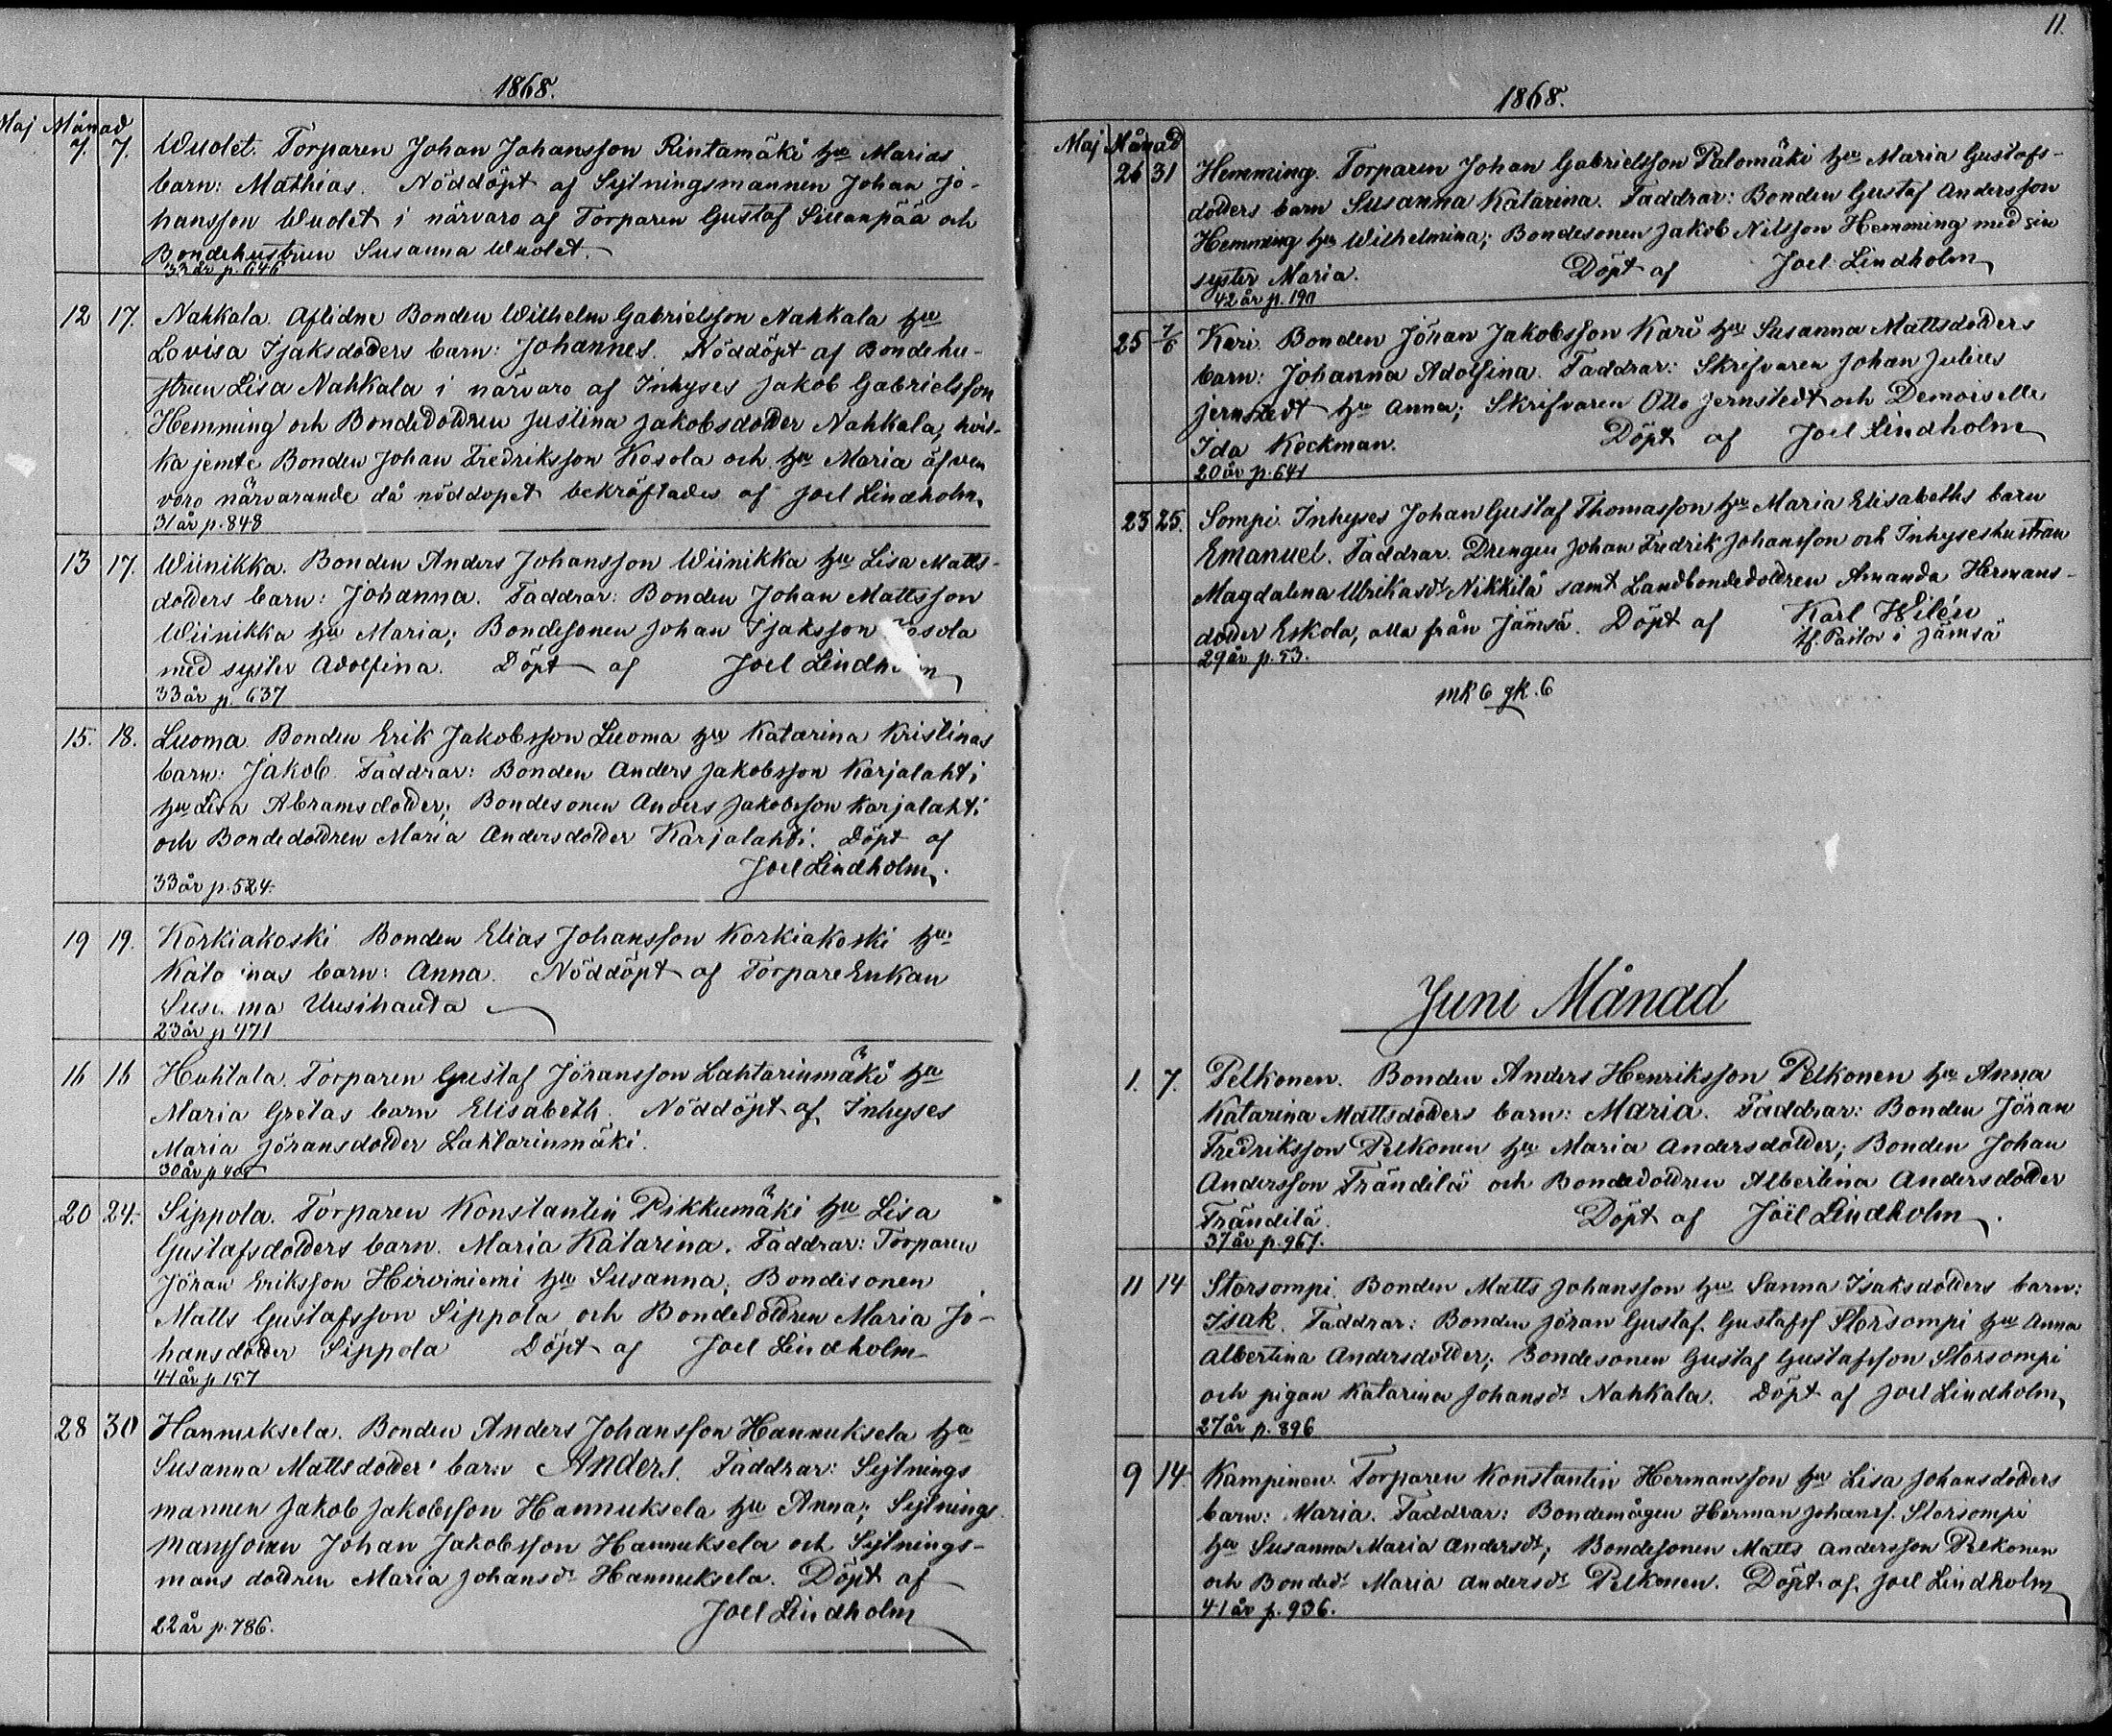 1868.
Maj Månad
7. 7. Wuolet. Torparen Johan Johansson Rintamäki hu Marias
barn: Mathias. Nöddöpt af Sytningsmannen Johan Jo-
hansson Wuolet i närvaro af Torparen Gustaf Sillanpää och
Bondehustrun Susanna Wuolet.
33 år p. 646
12 17. Nahkala. Aflidne Bonden Wilhelm Gabrielsson Nahkala hu
Lovisa Isaksdotters barn: Johannes. Nöddöpt af Bondehu-
strun Lisa Nahkala i närvaro af Inhyses Jakob Gabrielsson
Hemming och Bondedottren Justina Jakobsdotter Nahkala, hvil-
ka jemte Bonden Johan Fredriksson Kosola och hu Maria äfven
voro närvarande då nöddopet bekräftades af Joel Lindholm.
31 år p. 848
13 17. Wiinikka. Bonden Anders Johansson Wiinikka hu Lisa Matts-
dotters barn: Johanna. Faddrar: Bonden Johan Mattsson
Wiinikka hu Maria; Bondesonen Johan Isaksson Kosola
med syster Adolfina. Döpt af Joel Lindholm
33 år p. 637
15. 18. Luoma. Bonden Erik Jakobsson Luoma hu Katarina Kristinas
barn: Jakob. Faddrar: Bonden Anders Jakobsson Karjalahti
hu Lisa Abramsdotter; Bondesonen Anders Jakobsson Karjalahti
och Bondedottren Maria Andersdotter Karjalahti. Döpt af
Joel Lindholm.
33 år p. 524.
19 19. Korkiakoski. Bonden Elias Johansson Korkiakoski hu
Katarinas barn: Anna. Nöddöpt af Torpare Enkan
Susanna Uusihauta
23 år p 471
16 16 Huhtala. Torparen Gustaf Jöransson Lahtarinmäki hu
Maria Gretas barn Elisabeth. Nöddöpt af Inhyses
Maria Jöransdotter Laktarinmäki.
30 år p
20 24. Sippola. Torparen Konstantin Pikkumäki hu Lisa
Gustafsdotters barn. Maria Katarina. Faddrar: Torparen
Jöran Eriksson Hirviniemi hu Susanna; Bondesonen
Matts Gustafsson Sippola och Bondedottren Maria Jo-
hansdotter Sippola Döpt af Joel Lindholm
41 år p 157
28 30 Hannuksela. Bonden Anders Johansson Hannuksela hu
Susanna Mattsdotters barn Anders. Faddrar: Sytnings
mannen Jakob Jakobsson Hannuksela hu Anna; Sytnings
manssonen Johan Jakobsson Hannuksela och Sytnings-
mans dottren Maria Johansdr Hannuksela. Döpt af
Joel Lindholm
22 år p. 786.
11.
1868.
Maj Månad
26 31 Hemming. Torparen Johan Gabrielsson Palomäki hu Maria Gustafs-
dotters barn Susanna Katarina. Faddrar: Bonden Gustaf Andersson
Hemming hu Wilhelmina; Bondesonen Jakob Nilsson Hemming med sin
syster Maria. Döpt af Joel Lindholm
42 år p. 190
25 7/6 Kari. Bonden Jöran Jakobsson Kari hu Susanna Mattsdotters
barn: Johanna Adolfina. Faddrar: Skrifvaren Johan Julius
Jernstedt hu Anna; Skrifvaren Otto Jernstedt och Demoiselle
Ida Keckman. Döpt af Joel Lindholm
20 år p. 641
23 25. Sompi. Inhyses Johan Gustaf Thomasson hu Maria Elisabeths barn
Emanuel. Faddrar. Drengen Johan Fredrik Johansson och Inhyseshustrun
Magdalena Ulrikasdr Nikkilä samt Landbondedottren Amanda Hermans-
dotter Eskola, alla från Jämsä. Döpt af Karl Wilén
tf. Pastor i Jämsä
29 år p. 53.
mk 6 qk. 6
Juni Månad
1. 7. Pelkonen. Bonden Anders Henriksson Pelkonen hu Anna
Katarina Mattsdotters barn: Maria. Faddrar: Bonden Jöran
Fredriksson Pelkonen hu Maria Andersdotter; Bonden Johan
Andersson Frändilä och Bondedottren Albertina Andersdotter
Frändilä. Döpt af Joël Lindholm.
37 år p. 967.
11 14 Storsompi. Bonden Matts Johansson hu Sanna Isaksdotters barn:
Isak. Faddrar: Bonden Jöran Gustaf Gustafss Storsompi hu Anna
Albertina Andersdotter; Bondesonen Gustaf Gustafsson Storsompi
och pigan Katarina Johansdr Nahkala. Döpt af Joel Lindholm
27 år p. 896
9 14. Kampinen. Torparen Konstantin Hermansson hu Lisa Johansdotters
barn: Maria. Faddrar: Bondemågen Herman Johanss. Storsompi
hu Susanna Maria Andersdr; Bondesonen Matts Andersson Pelkonen
och Bondedr Maria Andersdr Pelkonen. Döpt af Joel Lindholm
41 år p. 936.